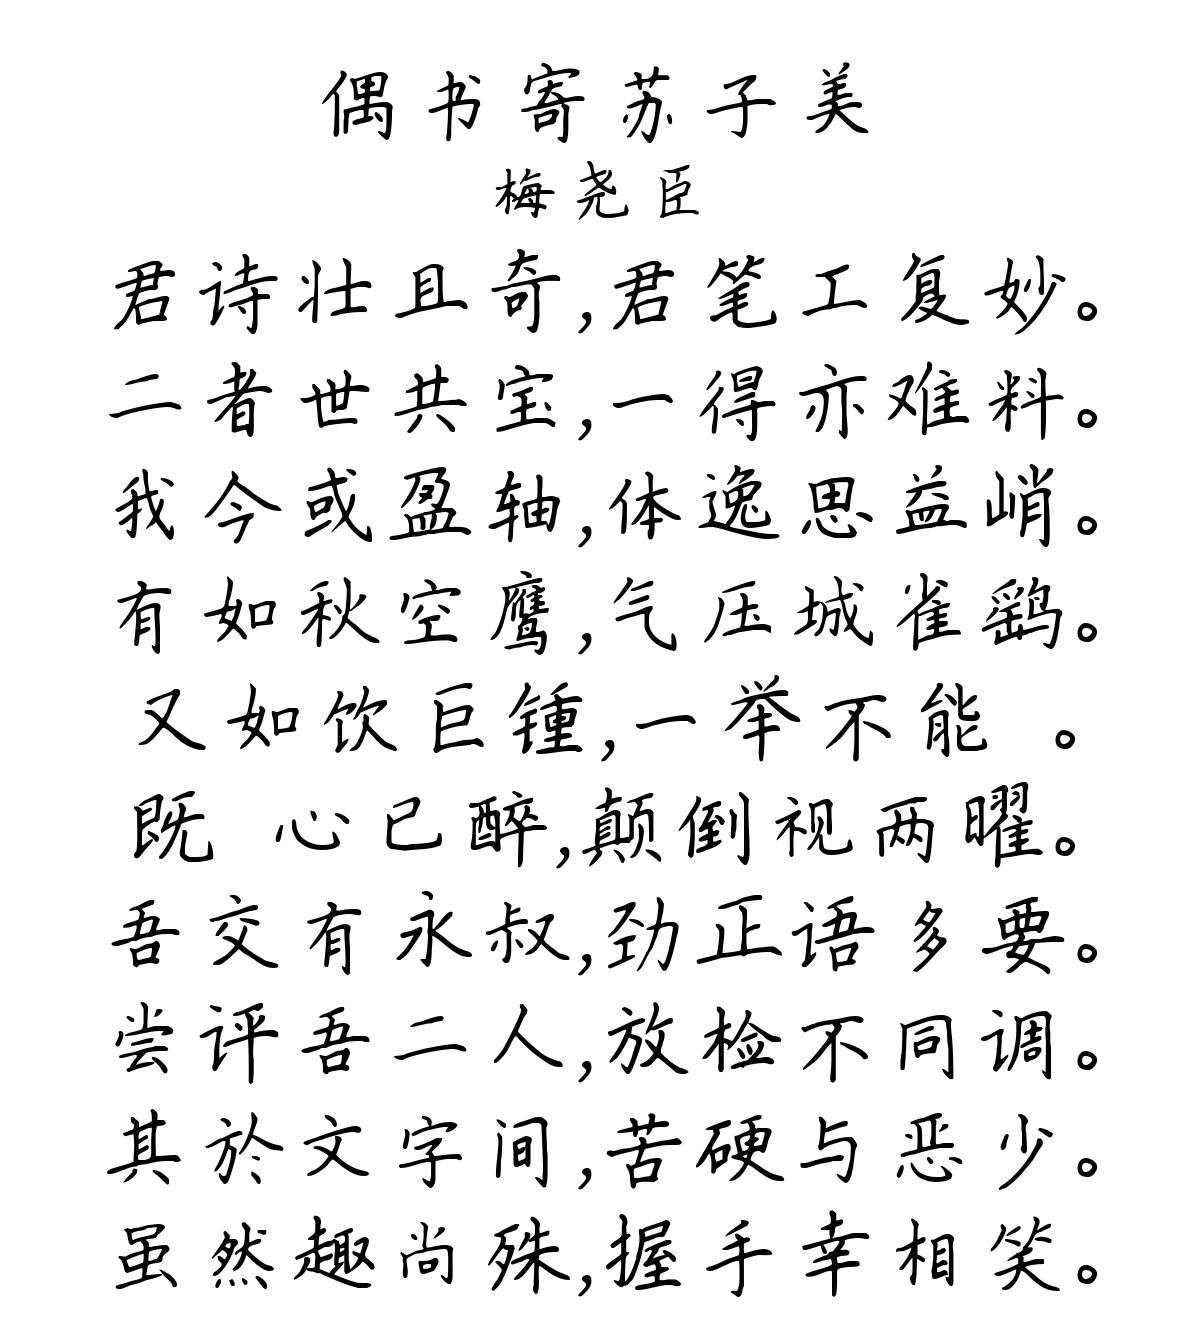 偶书寄苏子美
梅尧臣
君诗壮且奇,君笔工复妙。
二者世共宝,一得亦难料。
我今或盈轴,体逸思益峭。
有如秋空鹰,气压城雀鹞。
又如饮巨锺,一举不能 。
既 心已醉,颠倒视两曜。
吾交有永叔,劲正语多要。
尝评吾二人,放检不同调。
其於文字间,苦硬与恶少。
虽然趣尚殊,握手幸相笑。